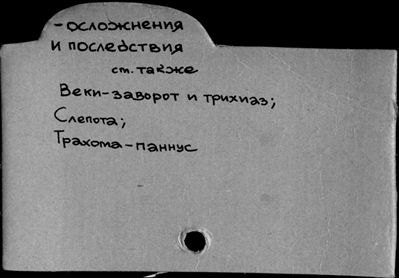 -осложнения
и последствия
ст. также
Веки-заворот и трихиаз;
Слепота;
Трахома-паннус